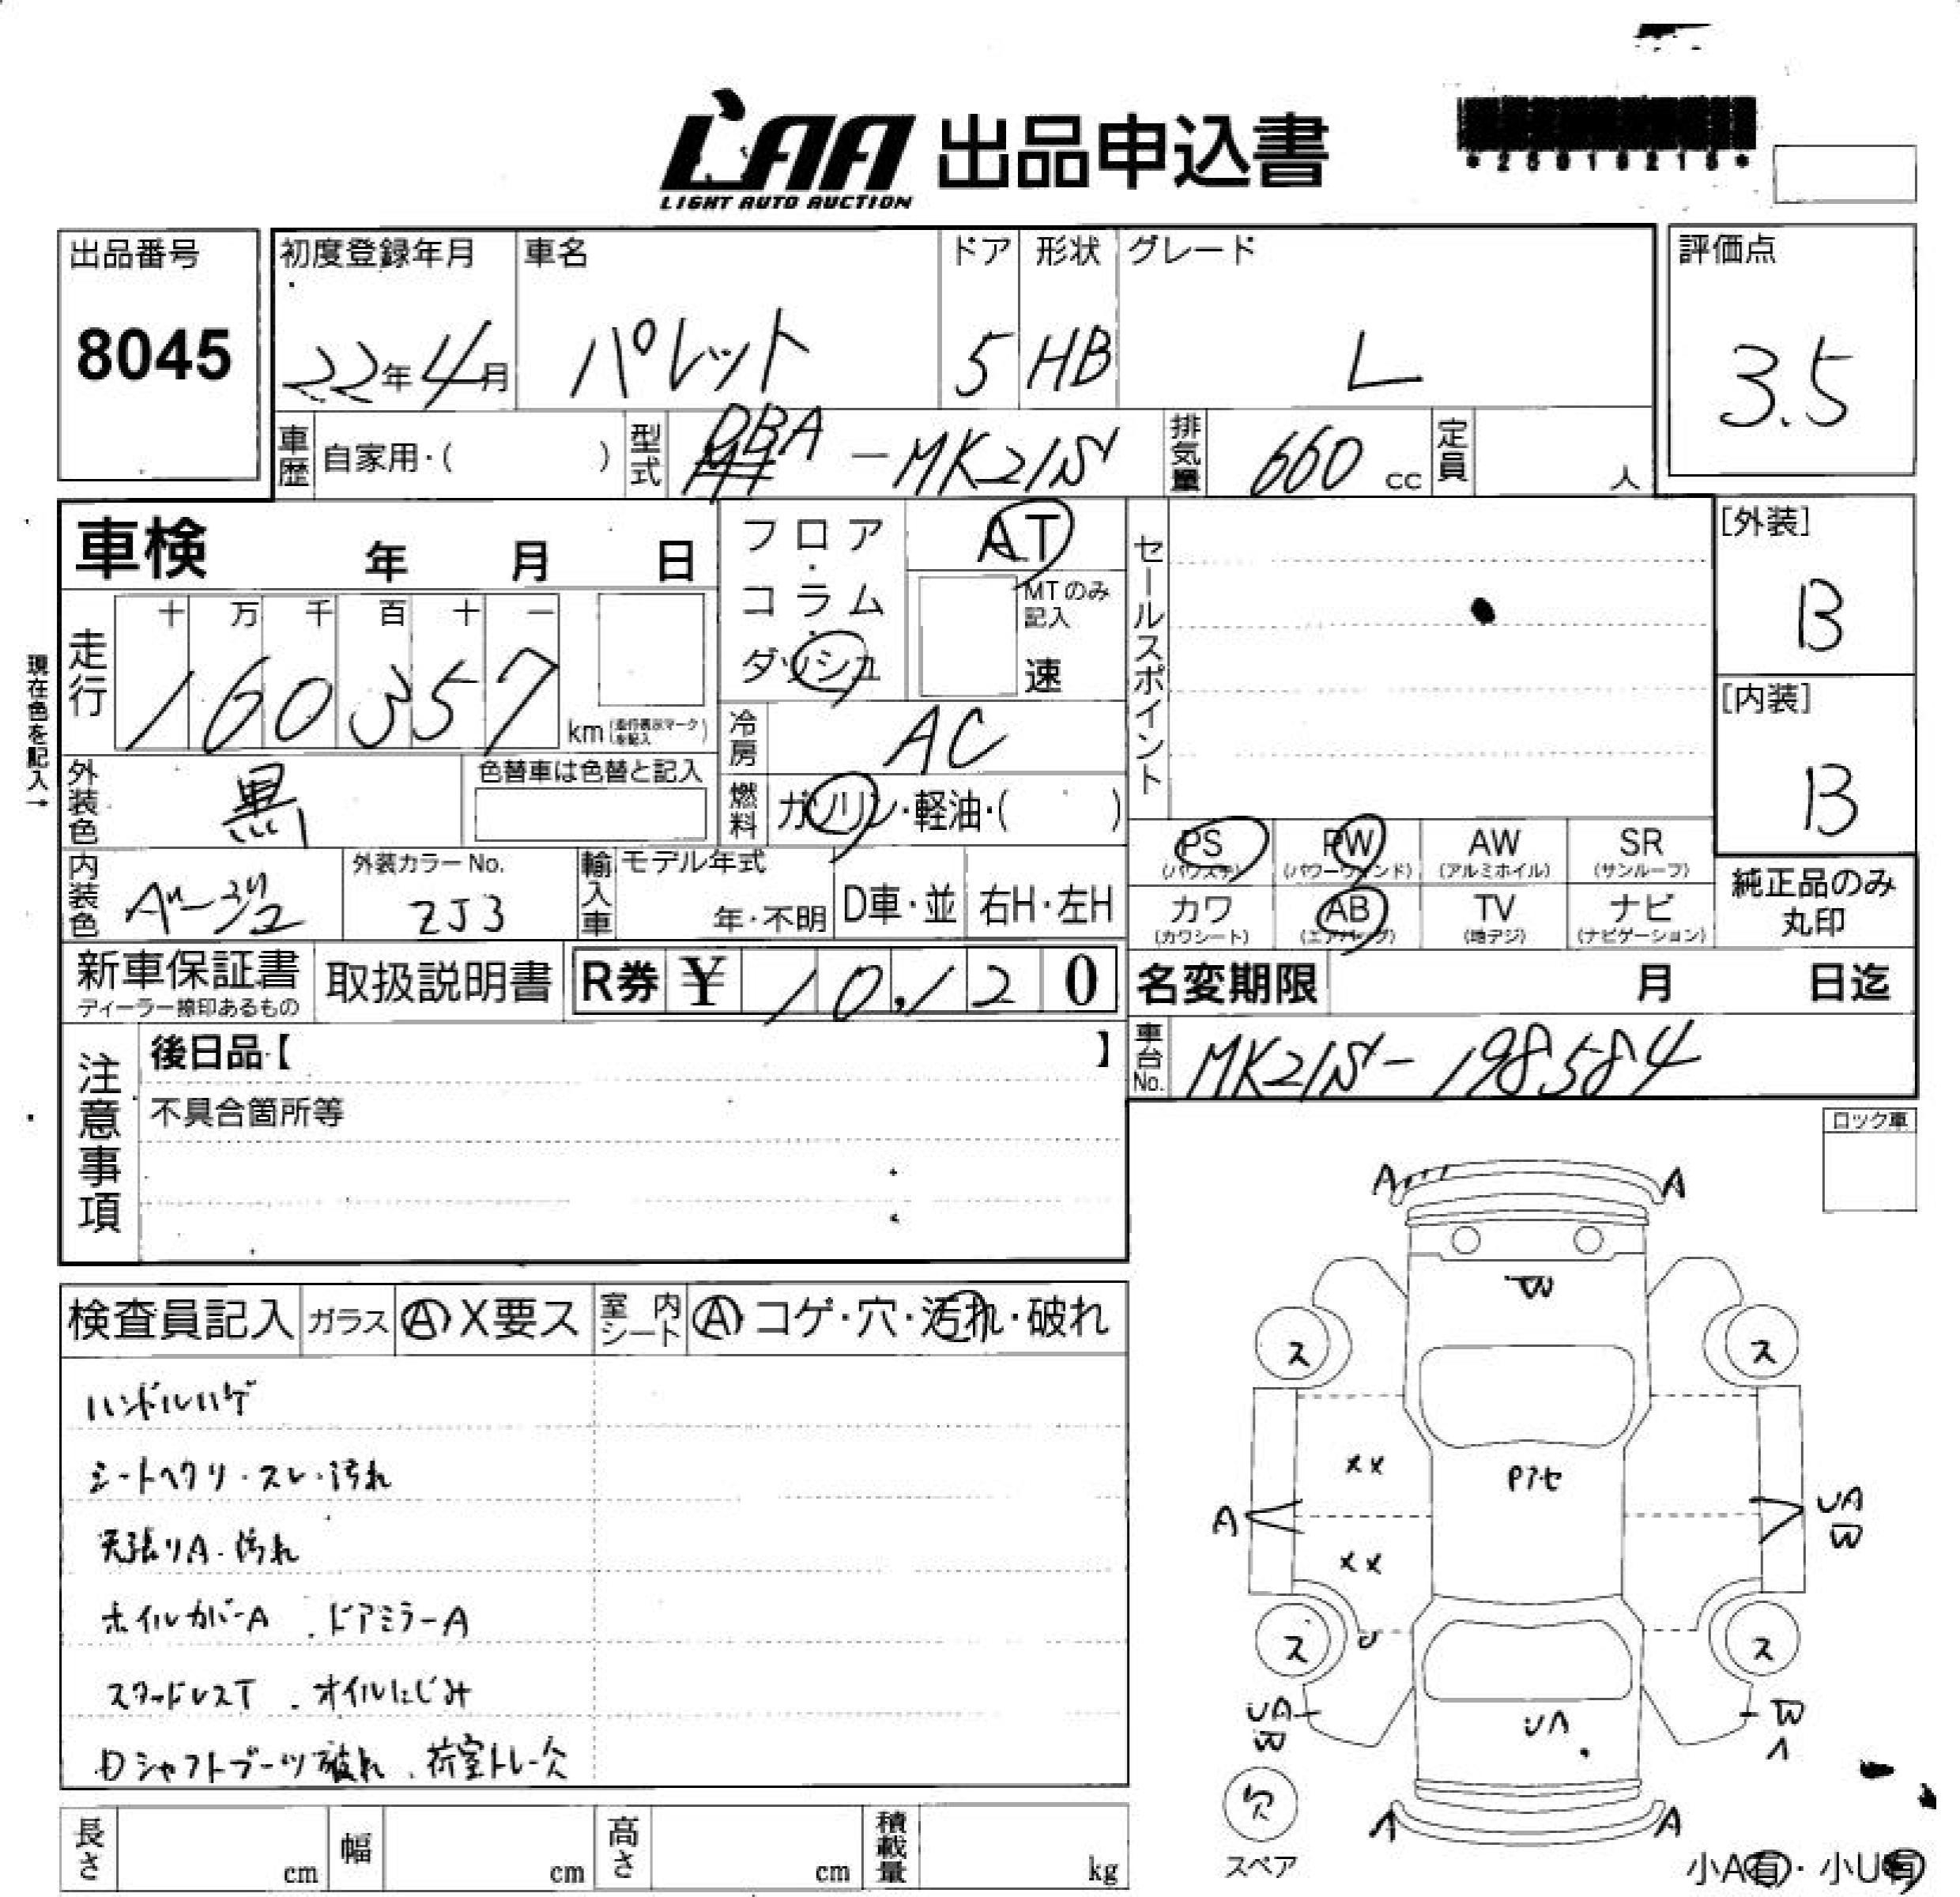 LAA 出品申込書
LIGHT AUTO AUCTION
出品番号 初度登録年月 車名 ドア 形状 グレード 評価点
8045 22年4月 パレット 5 HB L 3.5
車歴 自家用・( ) 型式 DBA -MK21S 排気量 660 cc 定員 人
車検 年 月 日 フロア・コラム・ダッシュ AT セールスポイント [外装]
MTのみ記入 速 B
走行 十 万 千 百 十 一
160357 km (走行表示マークを記入) 冷房 AC [内装]
現在色を記入→
外装色 黒 色替車は色替と記入 燃料 ガソリン・軽油・( ) B
PS (パワステ) PW (パワーウィンド) AW (アルミホイル) SR (サンルーフ)
内装色 ベージュ 外装カラーNo. 2J3 輸入車 モデル年式 年・不明 D車・並 右H・左H
カワ (カワシート) AB (エアバッグ) TV (地デジ) ナビ (ナビゲーション) 純正品のみ丸印
新車保証書 ディーラー捺印あるもの 取扱説明書 R券 ¥ 10,120 名変期限 月 日迄
注意事項 後日品【 】 車台No. MK21S-198584
不具合箇所等
ロック車
A A
検査員記入 ガラス A X要ス 室内シート A コゲ・穴・汚れ・破れ
W
ス ス
ハンドルハゲ
シートヘタリ・スレ・汚れ
XX Pアセ
天張りA・汚れ
A UA
W
XX
ホイルカバーA . ドアミラーA
ス U ス
スタッドレスT . オイルにじみ
UA UA W
W A
Dシャフトブーツ破れ . 荷室トレー欠
欠
スペア
A A
長さ cm 幅 cm 高さ cm 積載量 kg
小A有・小U有